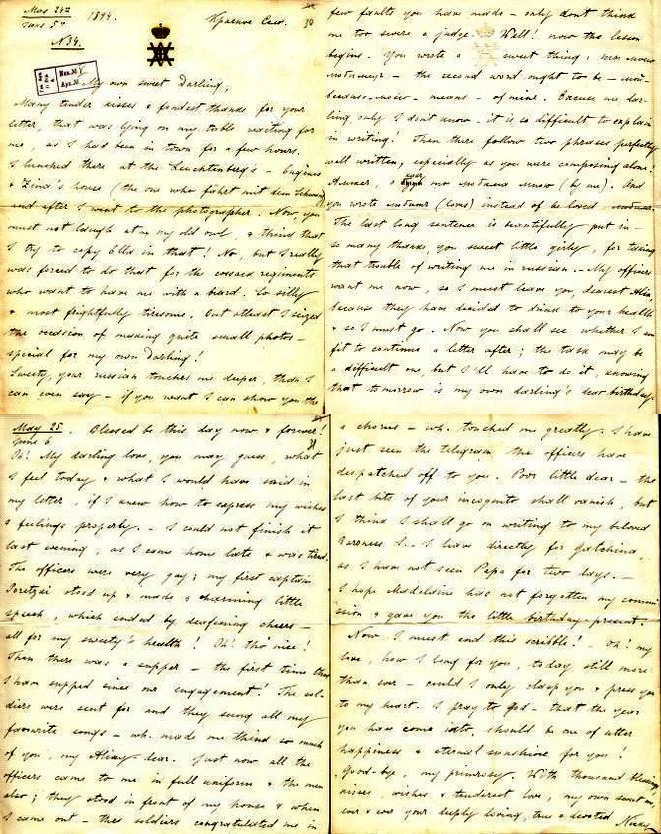 May 24th
June 5th 1894. Красное Село.
N 34.
My own sweet Darling,
Many tender kisses & fondest thanks for your
letter, that was lying on my table waiting for
me, as I had been in town for a few hours.
I lunched there at the Leuchtenberg's - Eugène
& Zina's house (the one who fährt mit dem
and after I went to the photographer. Now you
must not laugh at me my old owl, & think that
I try to copy Ella in that! No, but I really
was forced to do that for the cossack regiments
who want to have me with a beard. So silly
& most frightfully tiresome. But atleast I seized
the occasion of making quite small photos -
special for my own Darling!
Sweety, your russian touches me deeper, than I
can even say - if you want I can show you the
few faults you have made - only don't think
me too severe a judge. Well! now the lesson
begins. You wrote a sweet thing:
- the second word ought to be -
because - - means - of mine. Excuse me dar-
ling, only I don't know - it is so difficult to explain
in writing! Then there follow two phrases perfectly
well written, especially as you were composing alone!
(by me). And
you wrote (loves) instead of be loved
The last long sentence is beautifully put in -
so many thanks, you sweet little girly, for taking
that trouble of writing me in russian. - My officers
want me now, so I must leave you, dearest Alix,
because they have decided to drink to your health
& so I must go. Now you shall see whether I am
fit to continue a letter after; the task may be
a difficult one, but I'll have to do it, knowing
that tomorrow is my own darling's dear birthday.
May 25.
June 6 Blessed be this day now & forever!
Oh! My darling love, you may guess, what
I feel today & what I would have said in
my letter, if I knew how to express my wishes
& feelings properly. - I could not finish it
last evening, as I came home late & was tired.
The officers were very gay; my first captain
stood up & made a charming little
speech, which ended by deafening cheers -
all for my sweety's health! Oh! tho' nice!
Then there was a supper - the first time
I have supped since our engagement! The sol-
diers were sent for and they sung all my
favourite songs - wh. made me think so much
of you, my Alixy-dear. Just now all the
officers came to me in full uniform & the men
also; they stood in front of my house & when
I came out - the soldiers congratulated me in
a chorus - wh. touched me greatly. I have
just seen the telegram the officers have
despatched off to you. Poor little dear - the
last bits of your incognito shall vanish, but
I think I shall go on writing to my beloved
Baroness S... I leave directly for Gatchina,
as I have not seen Papa for two days. -
I hope Madeleine has not forgotten my commi-
sion & gave you the little birthday-present. -
Now I must end this scribble! - Oh! my
love, how I long for you, today still more
than ever - could I only clasp you & press you
to my heart. I pray to God - that the year
you have come into, should be one of utter
happiness & eternal sunshine for you!
Good-bye, my primrosy. With thousand blessings,
kisses, wishes & tenderest love, my own
ever & ever your deeply loving, true & devoted Nicky